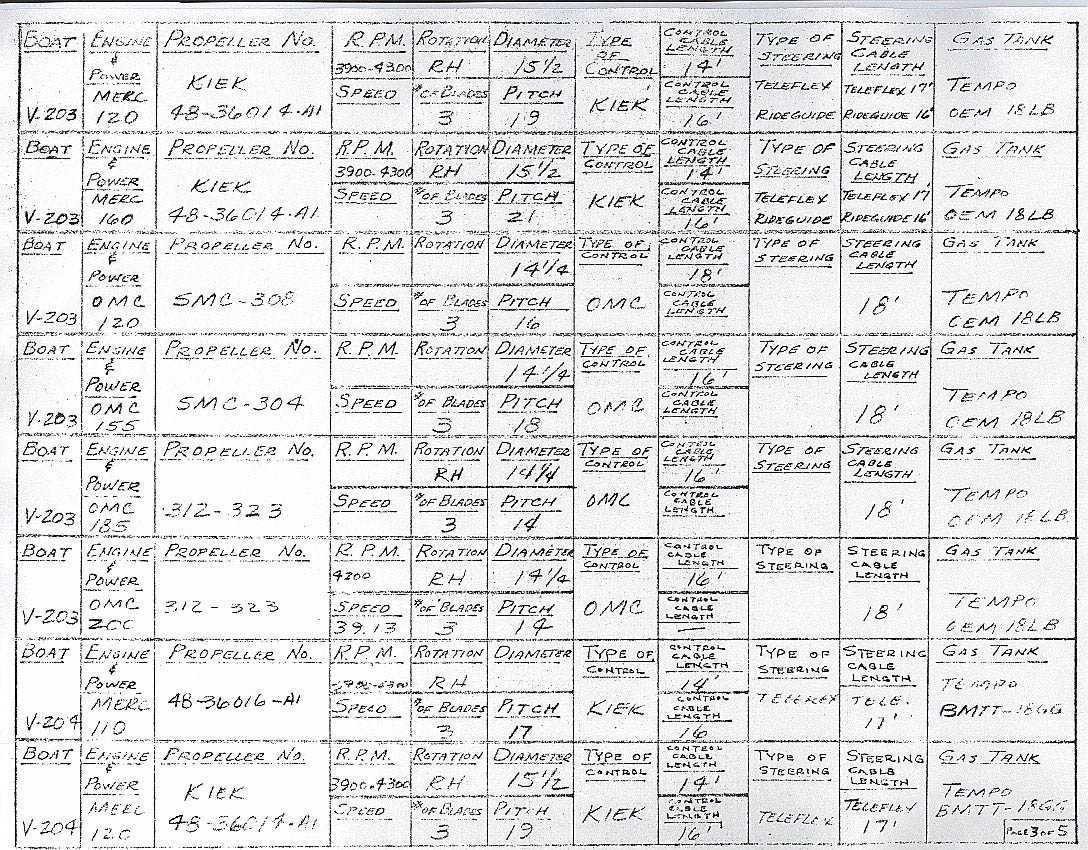 BOAT ENGINE & POWER PROPELLER NO. R.P.M. ROTATION DIAMETER TYPE OF CONTROL CONTROL CABLE LENGTH TYPE OF STEERING STEERING CABLE LENGTH GAS TANK
3900-4300 RH 15 1/2 14'
KIEK SPEED # OF BLADES PITCH CONTROL CABLE LENGTH TELEFLEX TELEFLEX 17' TEMPO
V-203 MERC 120 48-36014-A1 3 19 KIEK 16' RIDEGUIDE RIDEGUIDE 16' OEM 18LB
BOAT ENGINE & POWER PROPELLER NO. R.P.M. ROTATION DIAMETER TYPE OF CONTROL CONTROL CABLE LENGTH TYPE OF STEERING STEERING CABLE LENGTH GAS TANK
3900-4300 RH 15 1/2 14'
KIEK SPEED # OF BLADES PITCH CONTROL CABLE LENGTH TELEFLEX TELEFLEX 17 TEMPO
V-203 MERC 160 48-36014-A1 3 21 KIEK 16' RIDEGUIDE RIDEGUIDE 16' OEM 18LB
BOAT ENGINE & POWER PROPELLER NO. R.P.M. ROTATION DIAMETER TYPE OF CONTROL CONTROL CABLE LENGTH TYPE OF STEERING STEERING CABLE LENGTH GAS TANK
14 1/4 18'
SPEED # OF BLADES PITCH CONTROL CABLE LENGTH
V-203 OMC 120 SMC-308 3 16 OMC 18' TEMPO OEM 18LB
BOAT ENGINE & POWER PROPELLER NO. R.P.M. ROTATION DIAMETER TYPE OF CONTROL CONTROL CABLE LENGTH TYPE OF STEERING STEERING CABLE LENGTH GAS TANK
14 1/4 16'
SPEED # OF BLADES PITCH CONTROL CABLE LENGTH
V-203 OMC 155 SMC-304 3 18 OMC 18' TEMPO OEM 18LB
BOAT ENGINE & POWER PROPELLER NO. R.P.M. ROTATION DIAMETER TYPE OF CONTROL CONTROL CABLE LENGTH TYPE OF STEERING STEERING CABLE LENGTH GAS TANK
RH 14 1/4 16'
SPEED # OF BLADES PITCH CONTROL CABLE LENGTH
V-203 OMC 185 312-323 3 14 OMC 18' TEMPO OEM 18LB
BOAT ENGINE & POWER PROPELLER NO. R.P.M. ROTATION DIAMETER TYPE OF CONTROL CONTROL CABLE LENGTH TYPE OF STEERING STEERING CABLE LENGTH GAS TANK
4200 RH 14 1/4 16'
SPEED # OF BLADES PITCH CONTROL CABLE LENGTH
V-203 OMC 200 312-323 39.13 3 14 OMC — 18' TEMPO OEM 18LB
BOAT ENGINE & POWER PROPELLER NO. R.P.M. ROTATION DIAMETER TYPE OF CONTROL CONTROL CABLE LENGTH TYPE OF STEERING STEERING CABLE LENGTH GAS TANK
RH 14'
SPEED # OF BLADES PITCH CONTROL CABLE LENGTH
V-204 MERC 110 48-36016-A1 3 17 KIEK 16 TELEFLEX TELE. TEMPO BMTT-18GG
BOAT ENGINE & POWER PROPELLER NO. R.P.M. ROTATION DIAMETER TYPE OF CONTROL CONTROL CABLE LENGTH TYPE OF STEERING STEERING CABLE LENGTH GAS TANK
3900-4300 RH 15 1/2 14'
KIEK SPEED # OF BLADES PITCH CONTROL CABLE LENGTH
V-204 MERC 120 48-36014-A1 3 19 KIEK 16' TELEFLEX TELEFLEX 17' TEMPO BMTT-18GG
PAGE 3 OF 5